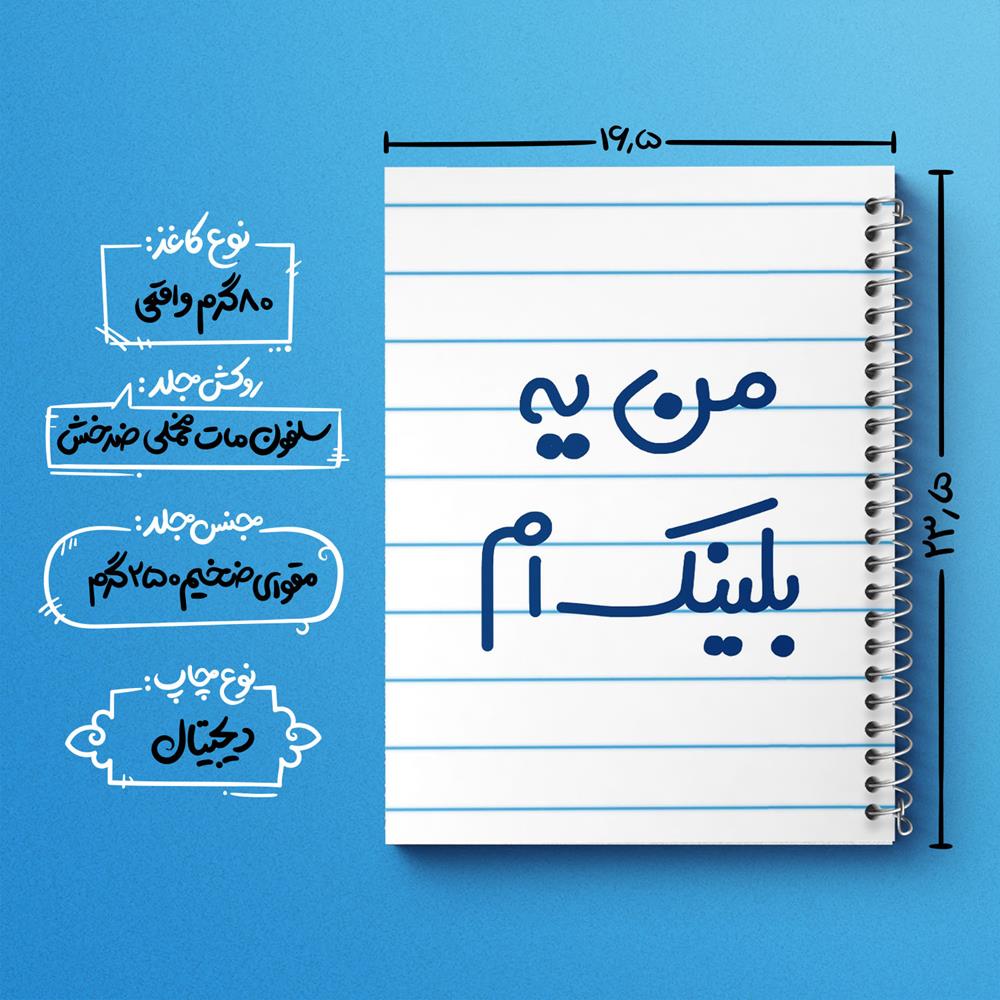 ۱۶٫۵
۲۳٫۵
من یه
بلینک ام
نوع کاغذ:
۸۰ گرم واقعی
روکش جلد:
سلفون مات مخملی ضدخش
جنس جلد:
مقوای ضخیم ۲۵۰ گرم
نوع چاپ:
دیجیتال